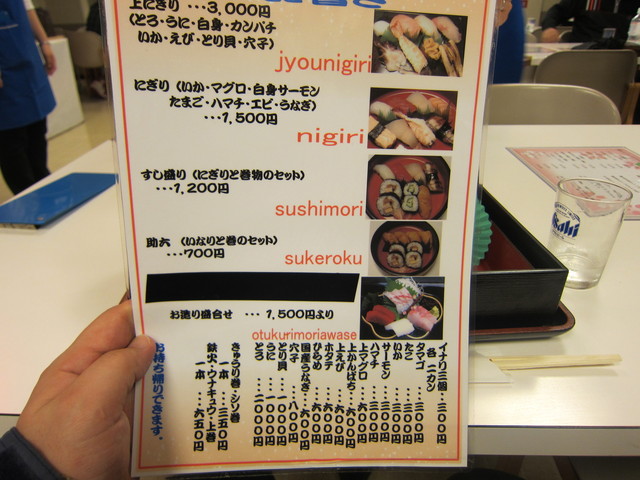 上にぎり ・・・3,000円
(とろ・うに・白身・カンパチ
いか・えび・とり貝・穴子)
jyounigiri
にぎり (いか・マグロ・白身サーモン
たまご・ハマチ・エビ・うなぎ)
・・・1,500円
nigiri
すし盛り (にぎりと巻物のセット)
・・・1,200円
sushimori
助六 (いなりと巻のセット)
・・・700円
sukeroku
お造り盛合せ ・・・ 1,500円より
otukurimoriawase
各一カン
イナリ三個・三〇〇円
タマゴ
いか・・・・三〇〇円
サーモン・三〇〇円
ハマチ・・・三〇〇円
上マグロ
上かんぱち・六〇〇円
上えび・・・六〇〇円
ホタテ
ひらめ
国産うなぎ・六〇〇円
穴子・・・・八〇〇円
とり貝
うに・・・一〇〇〇円
とろ・・・二〇〇〇円
きゅうり巻・シソ巻
一本・・・三五〇円
鉄火・ウナキュウ・上巻
一本・・・六五〇円
お持ち帰りできます。
Asahi